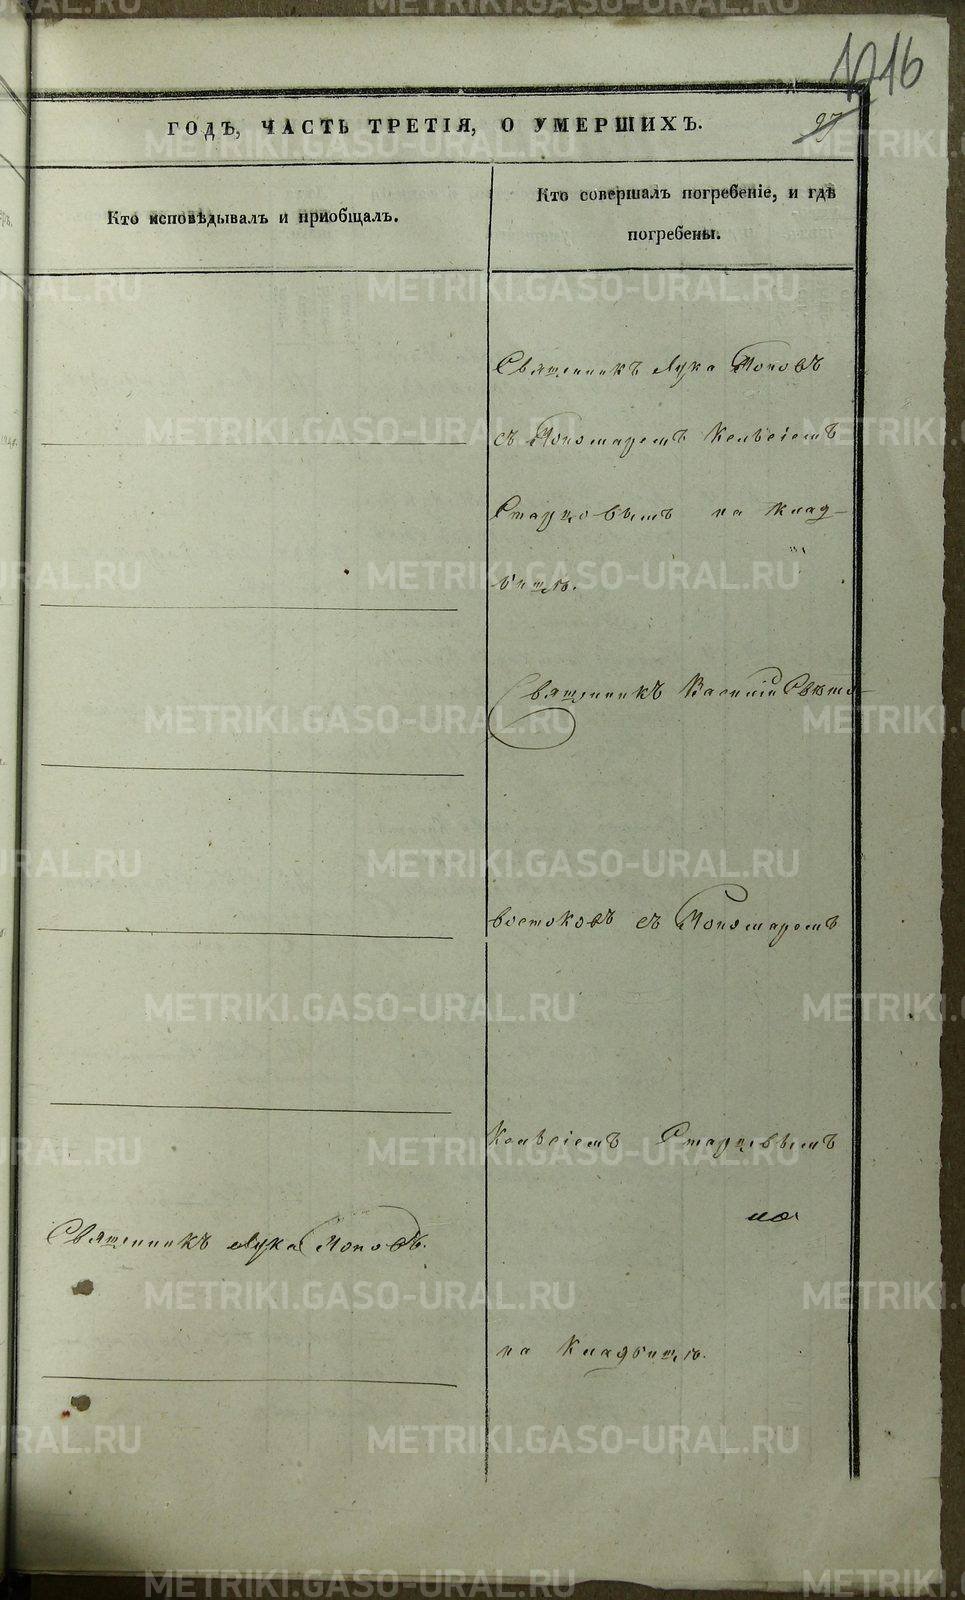 1216
27
ГОДЪ, ЧАСТЬ ТРЕТІЯ, О УМЕРШИХЪ.
Кто исповѣдывалъ и пріобщалъ.
Кто совершалъ погребеніе, и гдѣ
погребены.
Священникъ Лука Поповъ
съ Пономаремъ
Старцовымъ на клад-
бищѣ.
Священникъ Василій Свѣто-
востоковъ съ Пономаремъ
Старцовымъ
на
Священникъ Лука Поповъ.
на Кладбищѣ.
METRIKI.GASO-URAL.RU